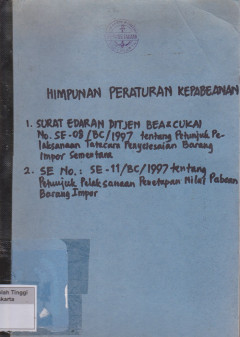 HIMPUNAN PERATURAN KEPABEANAN
1. SURAT EDARAN DITJEN BEA & CUKAI
No. SE-08/BC/1997 tentang Petunjuk Pe-
laksanaan Tatacara Penyelesaian Barang
Impor Sementara
2. SE No.: SE-11/BC/1997 tentang
Petunjuk Pelaksanaan Penetapan Nilai Pabean
Barang Impor
lah Tinggi
karta